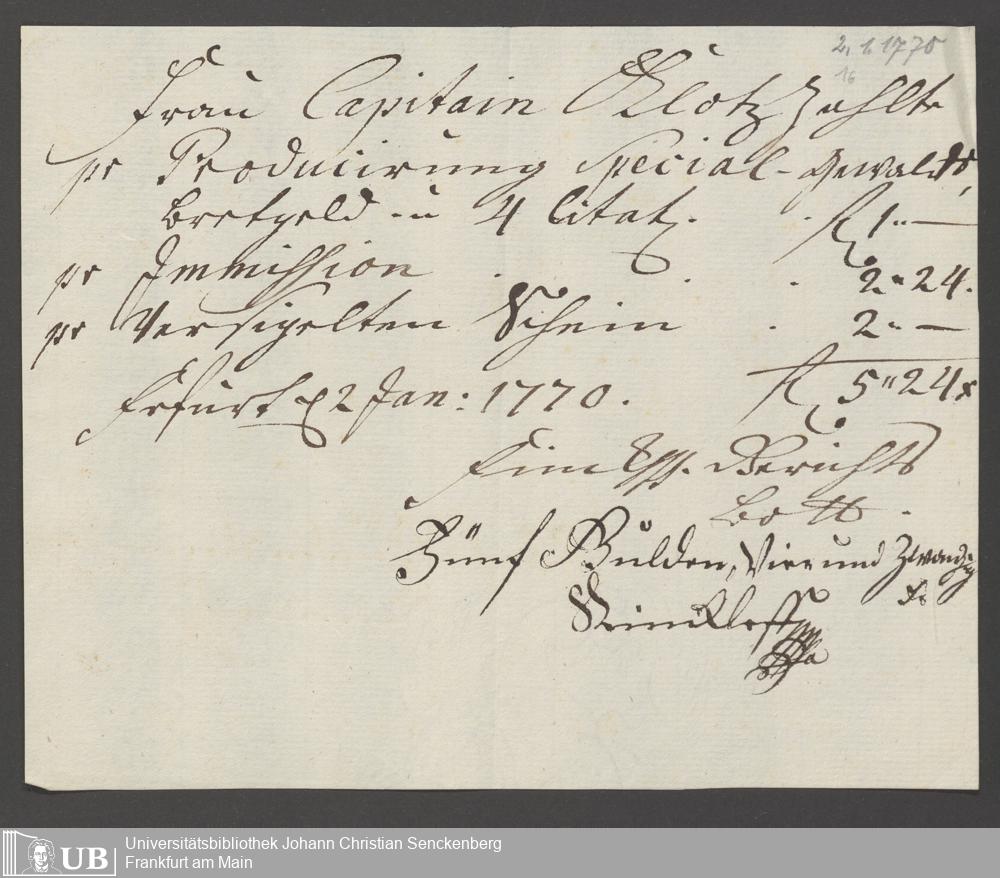 2. 1. 1770
16
Frau Capitain Klotz zahlt
pr Producirung Special-Gewalds,
botgeld u 4 Citat. f 1 " —
pr Immission . . . 2 " 24.
pr Versigelten Schein . 2 " —
f 5 " 24 x
Erfurt d 2 Jan: 1770.
Gerichts
Bott.
Fünf Gulden, Vier und Zwanzig
x
Universitätsbibliothek Johann Christian Senckenberg
Frankfurt am Main
UB